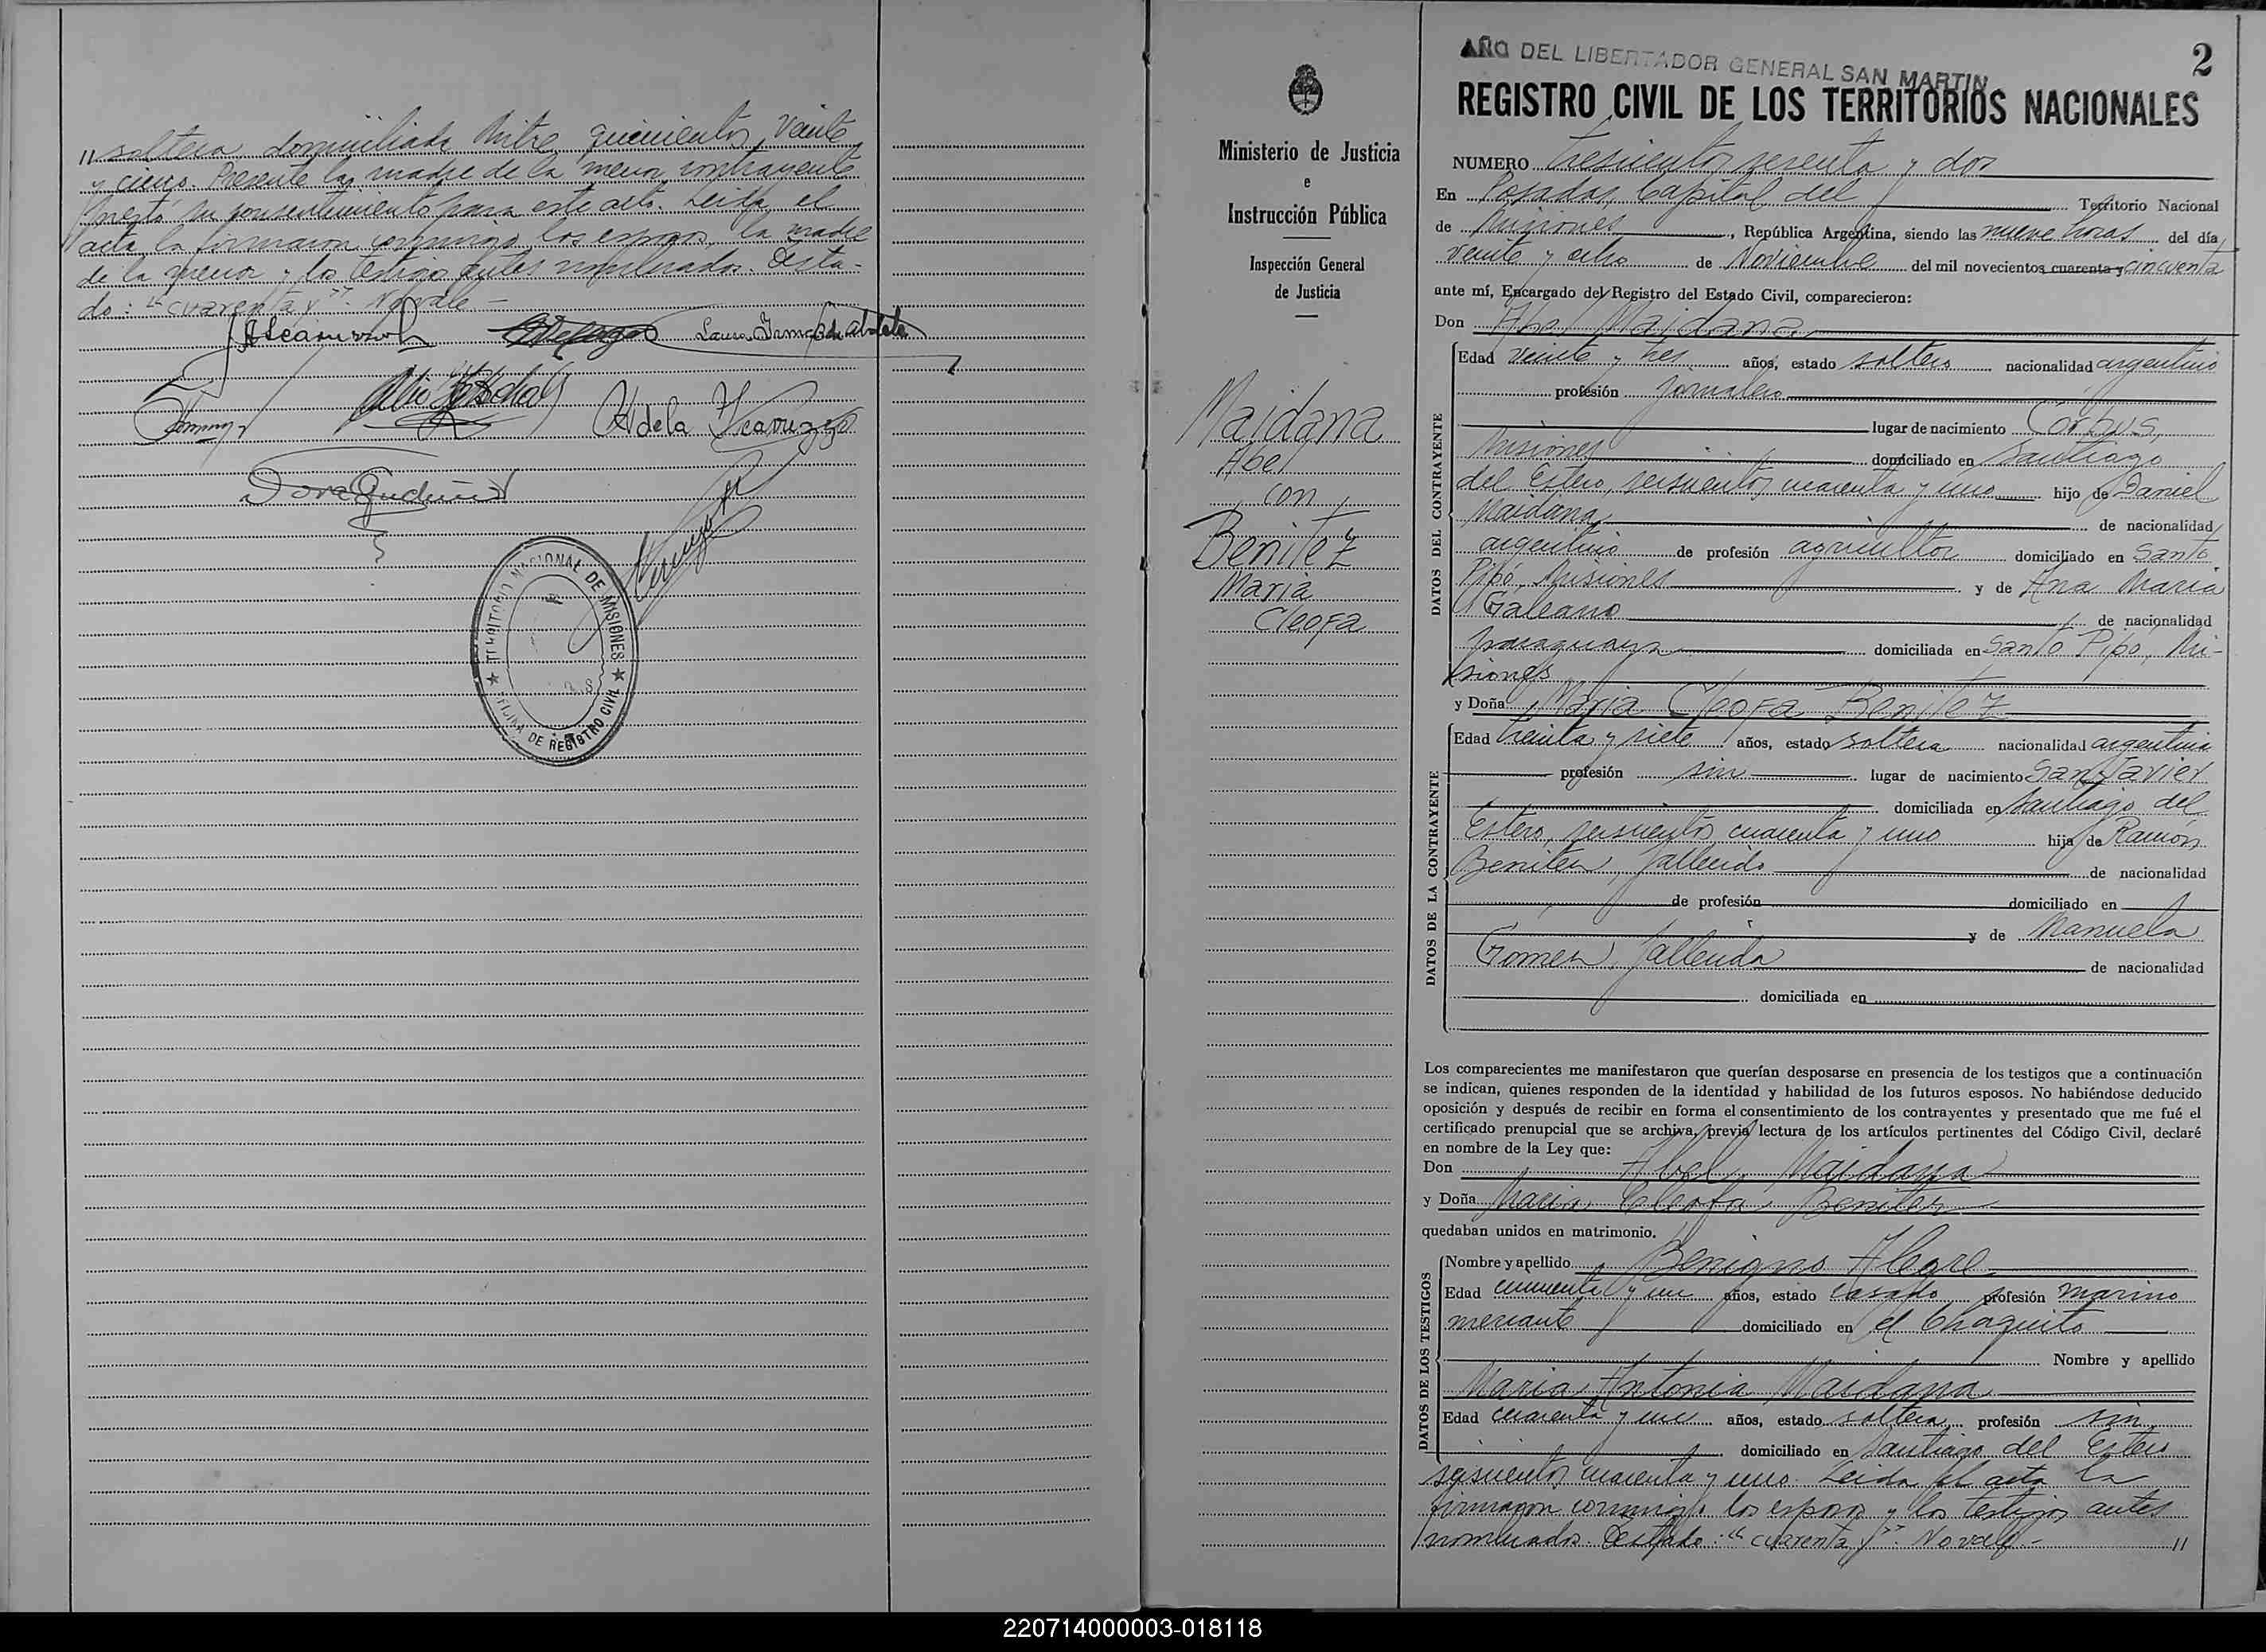 " soltera domiciliada Mitre quinientos veinte
y cinco. Presente la madre de la menor contrayente
prestó su consentimiento para este acto. Leida el
acta la firmaron conmigo los esposos, la madre
de la menor y los testigos antes nombrados. Testa-
do: "cuarenta y". No vale.-
Adela
TERRITORIO NACIONAL DE MISIONES
OFICINA DE REGISTRO CIVIL
Ministerio de Justicia
e
Instrucción Pública
Inspección General
de Justicia
Maidana
Abel
con
Benitez
Maria
Cleofa
AÑO DEL LIBERTADOR GENERAL SAN MARTIN
2
REGISTRO CIVIL DE LOS TERRITORIOS NACIONALES
NUMERO trescientos sesenta y dos
En Posadas Capital del Territorio Nacional
de Misiones, República Argentina, siendo las nueve horas del día
veinte y ocho de Noviembre del mil novecientos cuarenta y cincuenta
ante mí, Encargado del Registro del Estado Civil, comparecieron:
Don Abel Maidana
DATOS DEL CONTRAYENTE
Edad veinte y tres años, estado soltero nacionalidad argentino
profesión jornalero
lugar de nacimiento Corpus,
Misiones domiciliado en Santiago
del Estero, seiscientos cuarenta y uno hijo de Daniel
Maidana de nacionalidad
argentino de profesión agricultor domiciliado en Santo
Pipó, Misiones y de Ana Maria
Galeano de nacionalidad
paraguaya domiciliada en Santo Pipó, Mi-
siones
y Doña Maria Cleofa Benitez
DATOS DE LA CONTRAYENTE
Edad treinta y siete años, estado soltera nacionalidad argentina
profesión sin lugar de nacimiento San Javier
domiciliada en Santiago del
Estero, seiscientos cuarenta y uno hija de Ramón
Benitez, fallecido de nacionalidad
de profesión domiciliado en
y de Manuela
Gomez, fallecida de nacionalidad
domiciliada en
Los comparecientes me manifestaron que querían desposarse en presencia de los testigos que a continuación
se indican, quienes responden de la identidad y habilidad de los futuros esposos. No habiéndose deducido
oposición y después de recibir en forma el consentimiento de los contrayentes y presentado que me fué el
certificado prenupcial que se archiva, previa lectura de los artículos pertinentes del Código Civil, declaré
en nombre de la Ley que:
Don Abel Maidana
y Doña Maria Cleofa Benitez
quedaban unidos en matrimonio.
DATOS DE LOS TESTIGOS
Nombre y apellido Benigno Alegre
Edad cincuenta y un años, estado casado profesión marino
mercante domiciliado en el Chaquito
Nombre y apellido
Maria Antonia Maidana
Edad cuarenta y un años, estado soltera profesión sin
domiciliado en Santiago del Estero
seiscientos cuarenta y uno. Leida el acta la
firmaron conmigo los esposos y los testigos antes
nombrados. Testado: "cuarenta y". No vale.- "
220714000003-018118